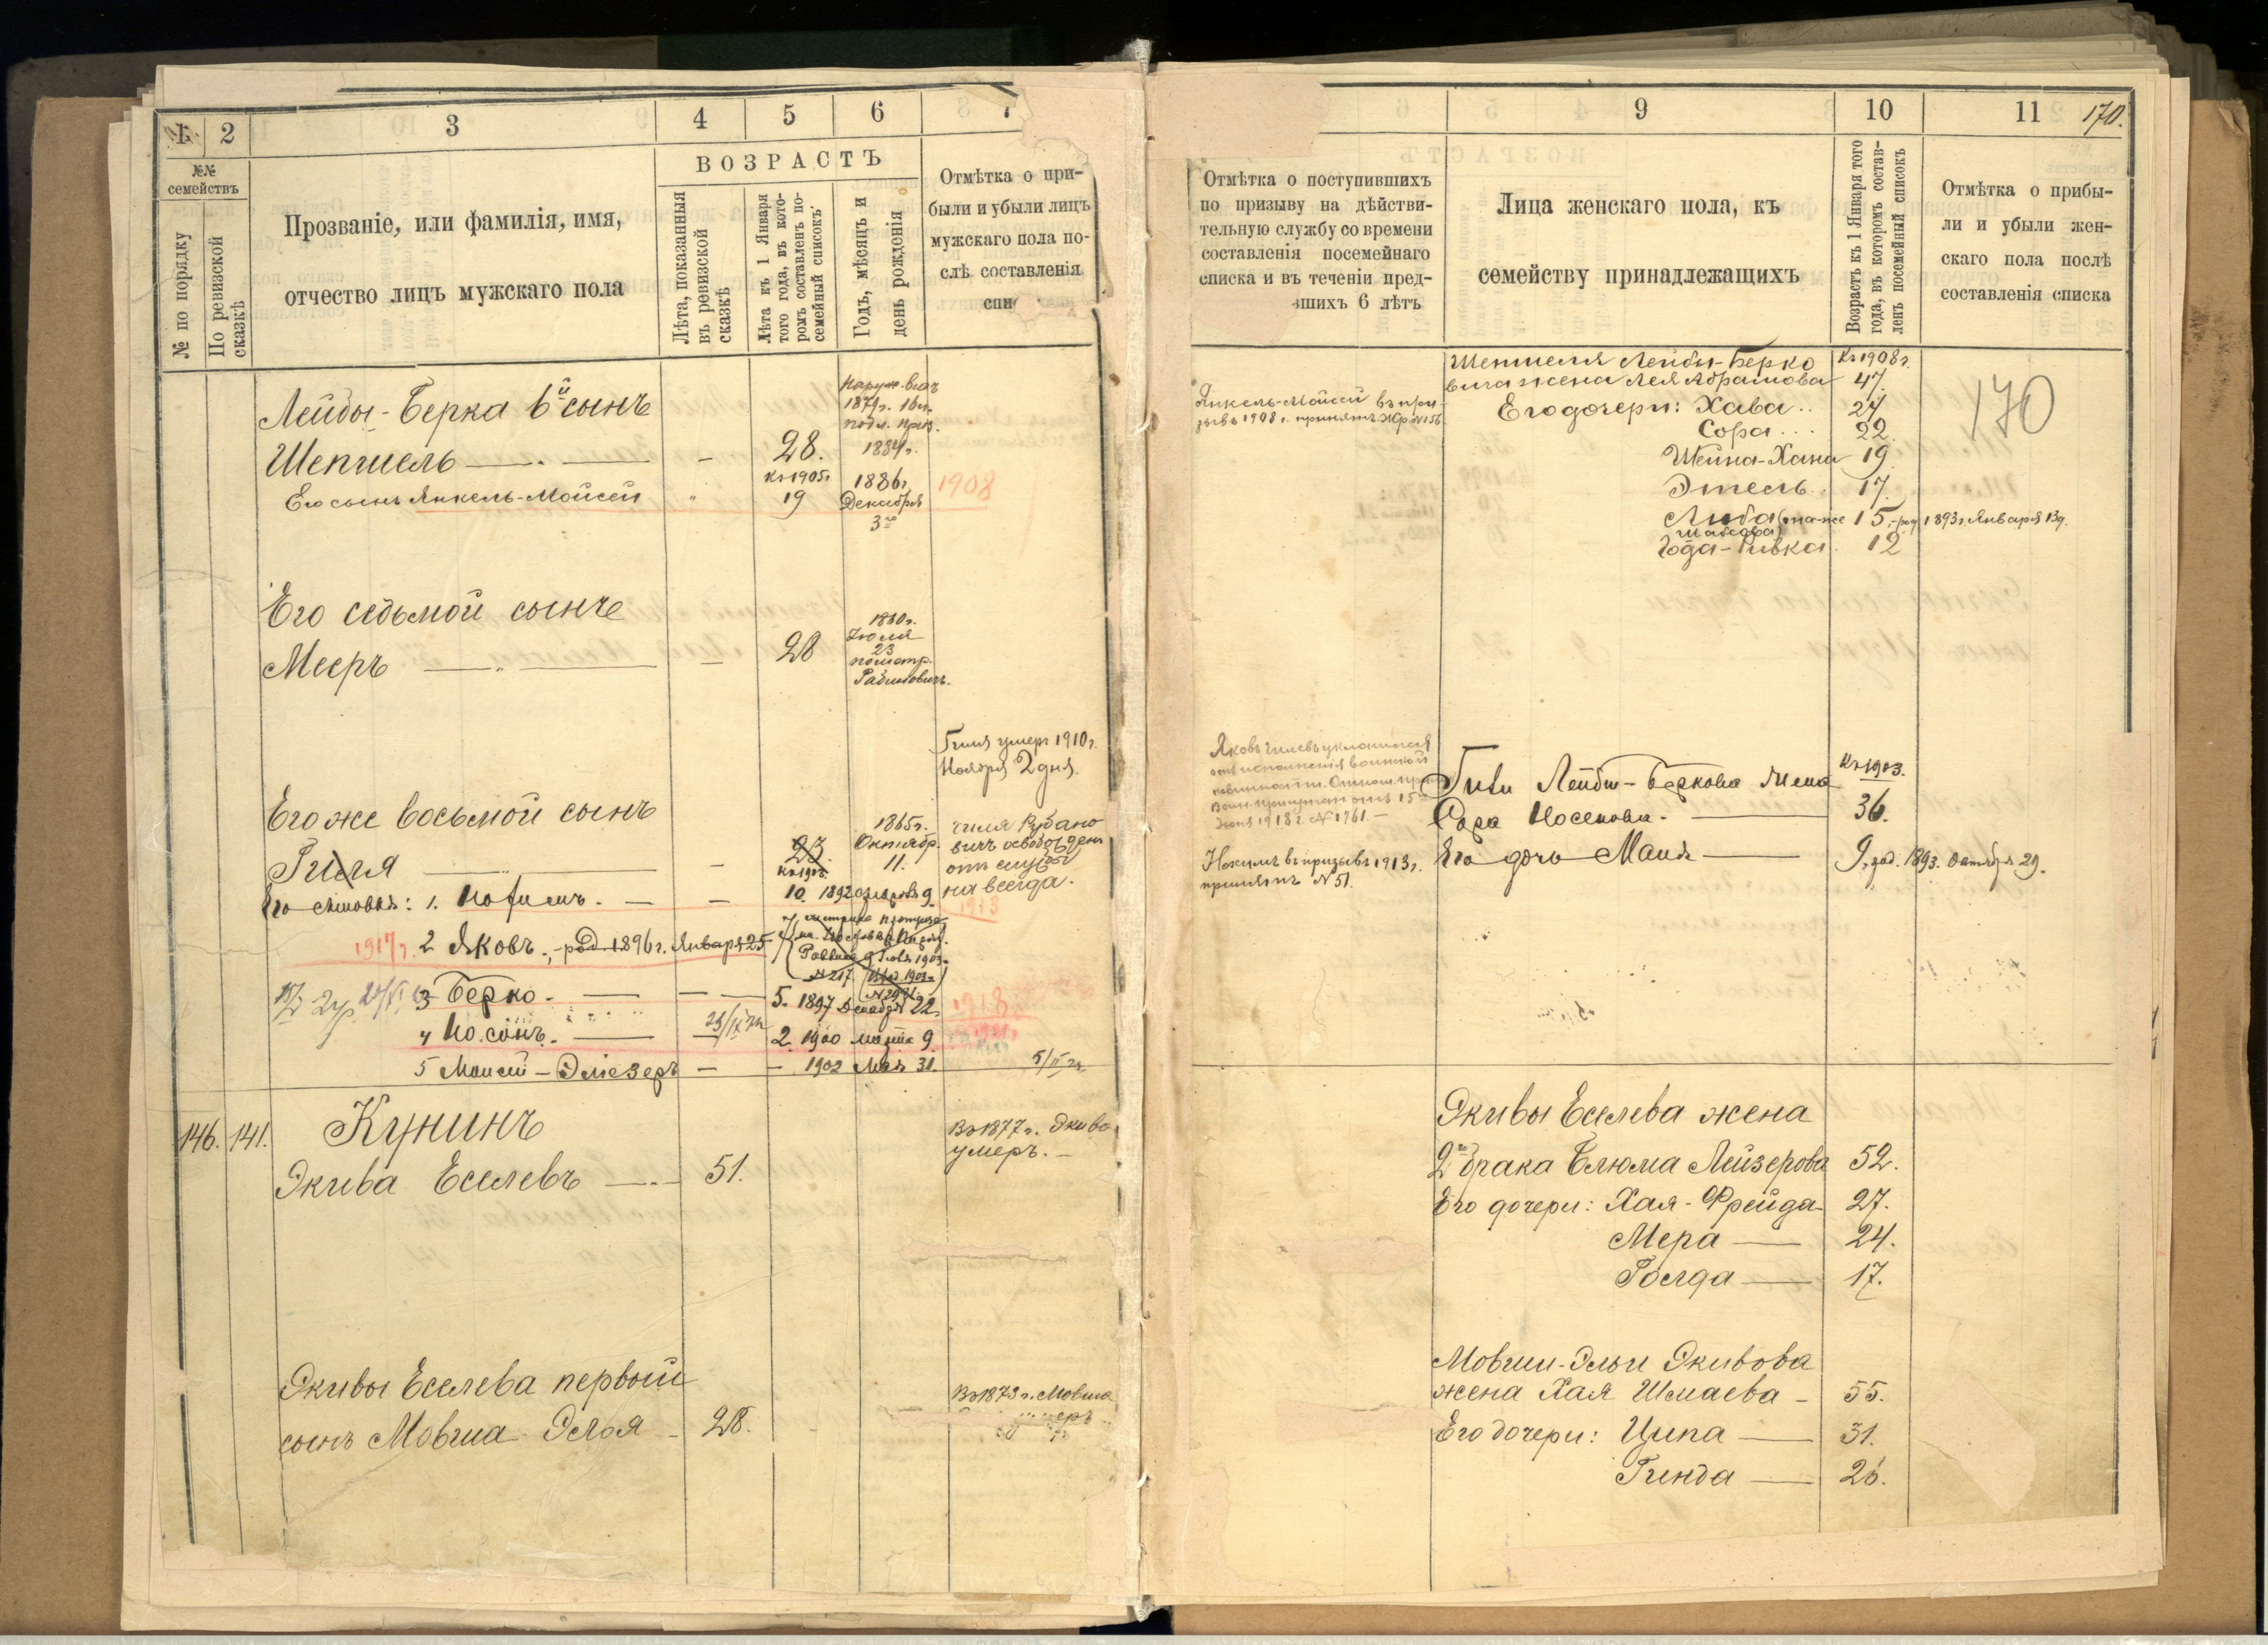 1 2 3 4 5 6
№№ семействъ
№ по порядку
По ревизской сказкѣ
Прозваніе, или фамилія, имя,
отчество лицъ мужскаго пола
ВОЗРАСТЪ
Лѣта, показанныя
въ ревизской
сказкѣ
Лѣта къ 1 Января
того года, въ кото-
ромъ составленъ по-
семейный списокъ
Годъ, мѣсяцъ и
день рожденія
Отмѣтка о при-
были и убыли лицъ
мужскаго пола по-
слѣ составленія
Лейбы-Берка 6й сынъ
Наруж. видъ
1871г.
1884г.
Шепшель — 28.
Къ 1905г.
Его сынъ Янкель-Мойсей " 19
1886г. Декабря 3го
1908
Его седьмой сынъ
Мееръ — 28
1860г.
Іюля
23
Рабиновичъ.
Гиля умеръ 1910г.
Ноября 2 дня.
Его же восьмой сынъ
Гиля — 23.
1865г.
Октябр.
11.
Гиля Рубано
вичъ освобожденъ
отъ службы
на всегда.
Его сыновья: 1. Нохимъ. — — 10. 1892 Февраля 9.
1913
1917г. 2 Яковъ, род. 1896г. Января 25
3 Берко. — — 5. 1897 Декабря 22.
1918
4 Но.сонъ. — 2. 1900 марта 9.
5 Моисей-Эліезеръ — — 1902 Мая 31.
146. 141. Кунинъ
Экива Еселевъ — 51.
Въ 1877г. Экива
умеръ. —
Экивы Еселева первый
сынъ Мовша-Эліоя — 28.
Въ 1873г. Мовша
9 10 11 170.
Отмѣтка о поступившихъ
по призыву на дѣйстви-
тельную службу со времени
составленія посемейнаго
списка и въ теченіи пред-
вшихъ 6 лѣтъ
Лица женскаго пола, къ
семейству принадлежащихъ
Возрастъ къ 1 Января того
года, въ которомъ состав-
ленъ посемейный списокъ
Отмѣтка о прибы-
ли и убыли жен-
скаго пола послѣ
составленія списка
Янкель-Мойсей въ при-
зывъ 1908г. принятъ Жр. №156
Шепшеля Лейбы-Берко
вича жена Лея Абрамова
Къ 1908г.
47.
170
Его дочери: Хава.. 24
Сора... 22.
Шейна-Хана 19.
Этель.. 17.
Либа (она же 15, род. 1893г. Января 13д.
Года-Ривка. 12
Яковъ Гилевъ уклонился
отъ исполненія воинской
Іюня 1918г. №1761. —
Гили Лейбы-Беркова жена
Сора Носенова. —
Къ 1903.
36.
Нохимъ въ призывъ 1913г.
принятъ №51.
Его дочь Маня — 9, род. 1893. Октября 29.
Экивы Еселева жена
2го брака Блюма Лейзерова 52.
Его дочери: Хая-Фрейда 27.
Мера — 24.
Голда — 17.
Мовши-Эльи Экивова
жена Хая Шмаева — 55.
Его дочери: Ципа — 31.
Гинда — 26.